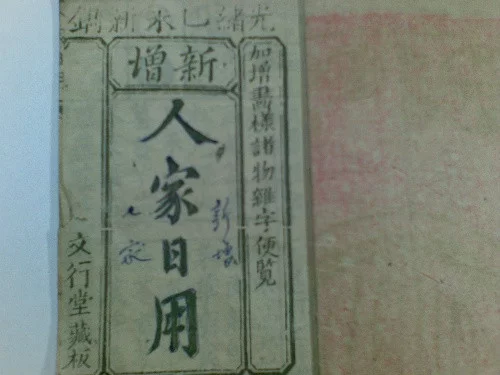 光緒乙未新鐫
新增
加增畫樣諸物雜字便覧
人家日用
新增
人家
文行堂藏板